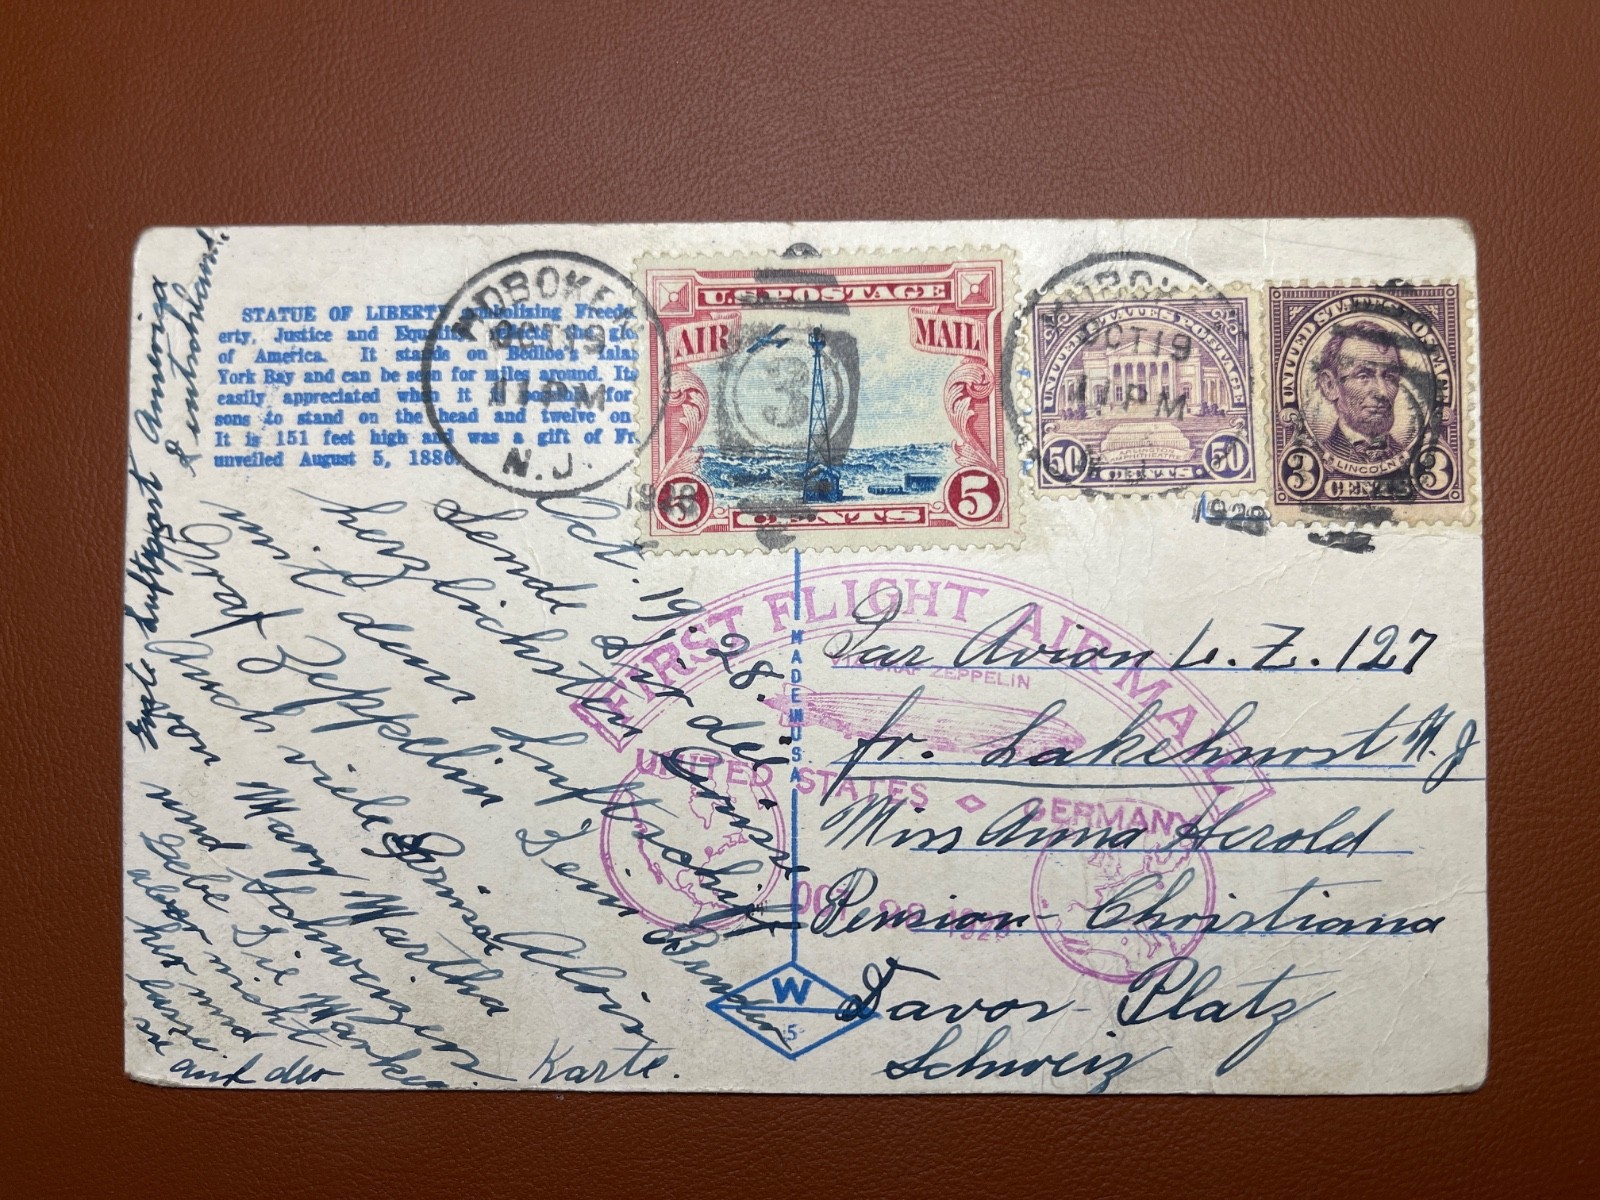 STATUE OF LIBERTY symbolizing Freed
erty, Justice and Equali the glo
of America. It stands on Bedloe's Isla
York Bay and can be seen for miles around. Its
easily appreciated when it is possible for
sons to stand on the head and twelve on
It is 151 feet high and was a gift of Fr
unveiled August 5, 1886.
HOBOKEN
OCT 19
11 PM
N.J.
1928
U.S. POSTAGE
AIR MAIL
3
5 CENTS 5
HOBOKEN
OCT 19
11 PM
1928
UNITED STATES POSTAGE
ARLINGTON
AMPHITHEATRE
50 CENTS 50
UNITED STATES POSTAGE
LINCOLN
3 CENTS 3
FIRST FLIGHT AIR MAIL
VIA GRAF ZEPPELIN
UNITED STATES GERMANY
OCT 28 1928
MADE IN USA
W
5
Par Avion L. Z. 127
fr. Lakehurst N. J
Miss Anna Herold
Pension Christiana
Davos-Platz
Schweiz
Oct. 19. 28.
Sende Dir die Grüsse
herzlichsten
mit dem Luftschiff
Graf Zeppelin Dein Bruder
Auch viele Grüsse Alois
von Mary Martha
und Schweizer
Gebe Die Marken
aber nicht
her und
lasse
sie auf der Karte.
Erste Luftpost America
Deutschland.